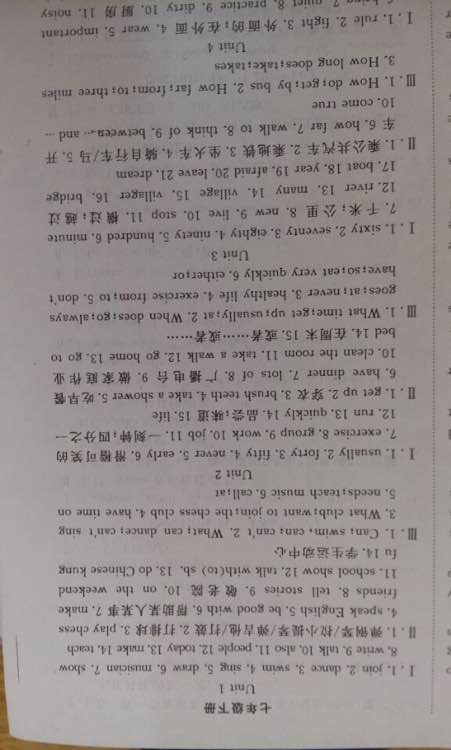 七年级下册
Unit 1
Ⅰ. 1. join 2. dance 3. swim 4. sing 5. draw 6. musician 7. show
8. write 9. talk 10. also 11. people 12. today 13. make 14. teach
Ⅱ. 1. 弹钢琴/拉小提琴/弹吉他/打鼓 2. 打排球 3. play chess
4. speak English 5. be good with 6. 帮助某人某事 7. make
friends 8. tell stories 9. 敬老院 10. on the weekend
11. school show 12. talk with(to) sb. 13. do Chinese kung
fu 14. 学生运动中心
Ⅲ. 1. Can; swim, can; can't 2. What; can dance; can't sing
3. What club; want to join; the chess club 4. have time on
5. needs; teach music 6. call; at
Unit 2
Ⅰ. 1. usually 2. forty 3. fifty 4. never 5. early 6. 滑稽可笑的
7. exercise 8. group 9. work 10. job 11. 一刻钟;四分之一
12. run 13. quickly 14. 品尝;味道 15. life
Ⅱ. 1. get up 2. 穿衣 3. brush teeth 4. take a shower 5. 吃早餐
6. have dinner 7. lots of 8. 广播电台 9. 做家庭作业
10. clean the room 11. take a walk 12. go home 13. go to
bed 14. 在周末 15. 或者……或者……
Ⅲ. 1. What time; get up; usually; at 2. When does; go; always
goes; at; never 3. healthy life 4. exercise from; to 5. don't
have; so; eat very quickly 6. either; or
Unit 3
Ⅰ. 1. sixty 2. seventy 3. eighty 4. ninety 5. hundred 6. minute
7. 千米;公里 8. new 9. live 10. stop 11. 横过;越过
12. river 13. many 14. village 15. villager 16. bridge
17. boat 18. year 19. afraid 20. leave 21. dream
Ⅱ. 1. 乘公共汽车 2. 乘地铁 3. 坐火车 4. 骑自行车/马 5. 开
车 6. how far 7. walk to 8. think of 9. between… and …
10. come true
Ⅲ. 1. How do; get; by bus 2. How far; from; to; three miles
3. How long does; take; takes
Unit 4
Ⅰ. 1. rule 2. fight 3. 外面的;在外面 4. wear 5. important
6. bring 7. quiet 8. practice 9. dirty 10. 厨房 11. noisy